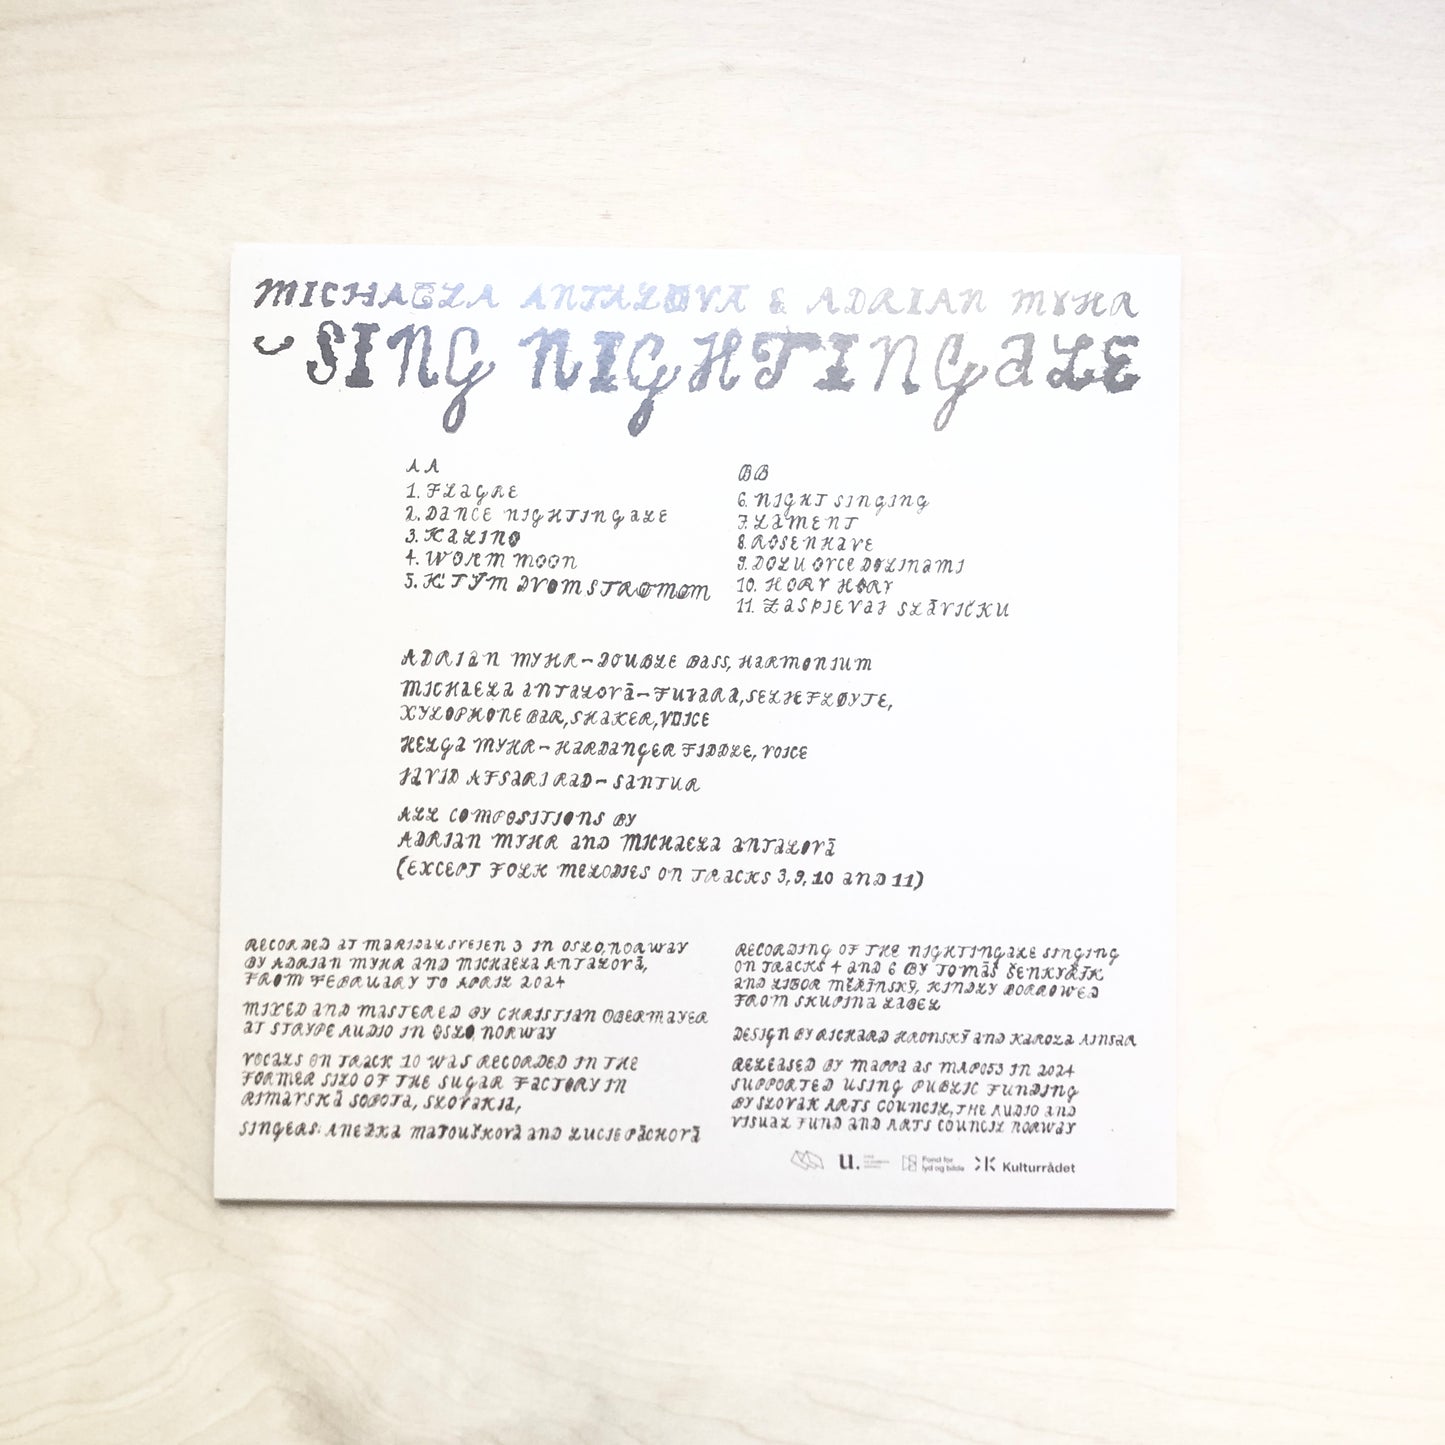 MICHAELA ANTALOVÁ & ADRIAN MYHR
– SING NIGHTINGALE
AA
1. FLAGRE
2. DANCE NIGHTINGALE
3. KALINO
4. WORM MOON
5. K TÝM DVOM STROMOM
BB
6. NIGHT SINGING
7. LAMENT
8. ROSENHAVE
9. DOLU OVCE DOLINAMI
10. HORY HORY
11. ZASPIEVAJ SLÁVIČKU
ADRIAN MYHR – DOUBLE BASS, HARMONIUM
MICHAELA ANTALOVÁ – FUJARA, SELJEFLØYTE,
XYLOPHONE BAR, SHAKER, VOICE
HELGA MYHR – HARDANGER FIDDLE, VOICE
JAVID AFSARI RAD – SANTUR
ALL COMPOSITIONS BY
ADRIAN MYHR AND MICHAELA ANTALOVÁ
(EXCEPT FOLK MELODIES ON TRACKS 3, 9, 10 AND 11)
RECORDED AT MARIDALSVEIEN 3 IN OSLO, NORWAY
BY ADRIAN MYHR AND MICHAELA ANTALOVÁ,
FROM FEBRUARY TO APRIL 2024
MIXED AND MASTERED BY CHRISTIAN OBERMAYER
AT STRYPE AUDIO IN OSLO, NORWAY
VOCALS ON TRACK 10 WAS RECORDED IN THE
FORMER SILO OF THE SUGAR FACTORY IN
RIMAVSKÁ SOBOTA, SLOVAKIA,
SINGERS: ANEŽKA MATOUŠKOVÁ AND LUCIE PÁCHOVÁ
RECORDING OF THE NIGHTINGALE SINGING
ON TRACKS 4 AND 6 BY TOMÁŠ ŠENKYŘÍK
AND LIBOR MĚŘÍNSKÝ, KINDLY BORROWED
FROM SKUPINA LABEL
DESIGN BY RICHARD HRONSKÝ AND KAROLA AINSAR
RELEASED BY MAPPA AS MAP053 IN 2024
SUPPORTED USING PUBLIC FUNDING
BY SLOVAK ARTS COUNCIL, THE AUDIO AND
VISUAL FUND AND ARTS COUNCIL NORWAY
u.
Fond for
lyd og bilde
Kulturrådet